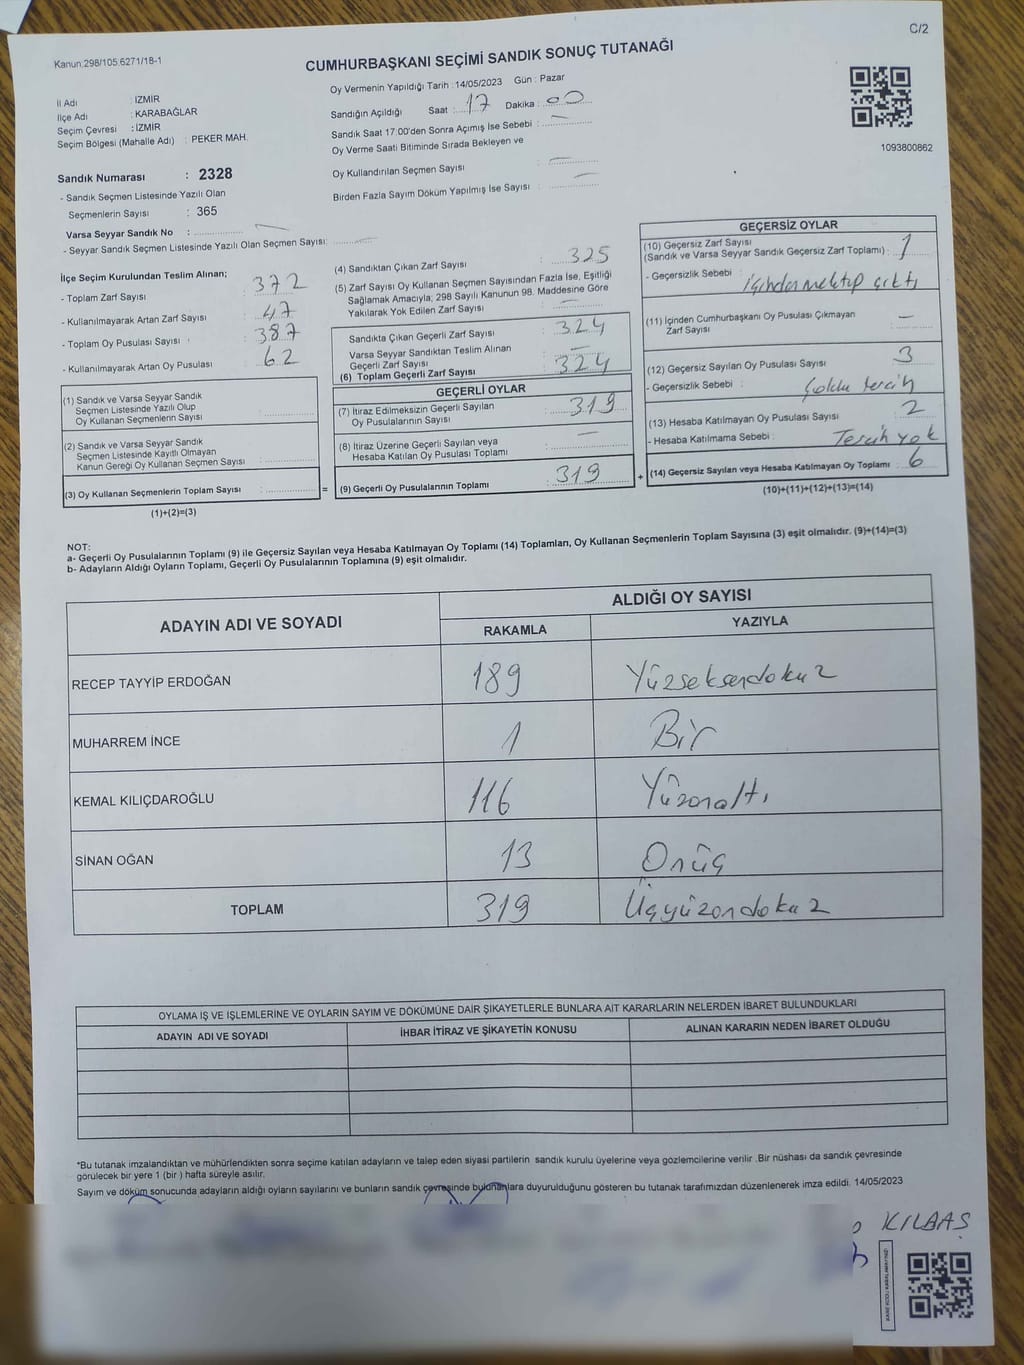 C/2
Kanun:298/105.6271/18-1
CUMHURBAŞKANI SEÇİMİ SANDIK SONUÇ TUTANAĞI
İl Adı : İZMİR
İlçe Adı : KARABAĞLAR
Seçim Çevresi : İZMİR
Seçim Bölgesi (Mahalle Adı) : PEKER MAH.
Sandık Numarası : 2328
- Sandık Seçmen Listesinde Yazılı Olan
Seçmenlerin Sayısı : 365
Varsa Seyyar Sandık No :
- Seyyar Sandık Seçmen Listesinde Yazılı Olan Seçmen Sayısı:
Oy Vermenin Yapıldığı Tarih :14/05/2023 Gün : Pazar
Sandığın Açıldığı Saat : 17 Dakika : 00
Sandık Saat 17.00'den Sonra Açımış İse Sebebi :
Oy Verme Saati Bitiminde Sırada Bekleyen ve
Oy Kullandırılan Seçmen Sayısı :
Birden Fazla Sayım Döküm Yapılmış İse Sayısı :
1093800862
İlçe Seçim Kurulundan Teslim Alınan;
- Toplam Zarf Sayısı : 372
- Kullanılmayarak Artan Zarf Sayısı : 47
- Toplam Oy Pusulası Sayısı : 387
- Kullanılmayarak Artan Oy Pusulası : 62
(1) Sandık ve Varsa Seyyar Sandık
Seçmen Listesinde Yazılı Olup
Oy Kullanan Seçmenlerin Sayısı :
(2) Sandık ve Varsa Seyyar Sandık
Seçmen Listesinde Kayıtlı Olmayan
Kanun Gereği Oy Kullanan Seçmen Sayısı :
(3) Oy Kullanan Seçmenlerin Toplam Sayısı : =
(1)+(2)=(3)
(4) Sandıktan Çıkan Zarf Sayısı : 325
(5) Zarf Sayısı Oy Kullanan Seçmen Sayısından Fazla İse, Eşitliği
Sağlamak Amacıyla; 298 Sayılı Kanunun 98. Maddesine Göre
Yakılarak Yok Edilen Zarf Sayısı :
Sandıkta Çıkan Geçerli Zarf Sayısı : 324
Varsa Seyyar Sandıktan Teslim Alınan
Geçerli Zarf Sayısı :
(6) Toplam Geçerli Zarf Sayısı : 324
GEÇERLİ OYLAR
(7) İtiraz Edilmeksizin Geçerli Sayılan
Oy Pusulasının Sayısı : 319
(8) İtiraz Üzerine Geçerli Sayılan veya
Hesaba Katılan Oy Pusulası Toplamı :
(9) Geçerli Oy Pusulalarının Toplamı : 319 +
GEÇERSİZ OYLAR
(10) Geçersiz Zarf Sayısı
(Sandık ve Varsa Seyyar Sandık Geçersiz Zarf Toplamı) : 1
- Geçersizlik Sebebi : içinden mektup çıktı
(11) İçinden Cumhurbaşkanı Oy Pusulası Çıkmayan
Zarf Sayısı : -
(12) Geçersiz Sayılan Oy Pusulası Sayısı : 3
- Geçersizlik Sebebi : Çoklu tercih
(13) Hesaba Katılmayan Oy Pusulası Sayısı : 2
- Hesaba Katılmama Sebebi : Tercih yok
(14) Geçersiz Sayılan veya Hesaba Katılmayan Oy Toplamı : 6
(10)+(11)+(12)+(13)=(14)
NOT:
a- Geçerli Oy Pusulalarının Toplamı (9) ile Geçersiz Sayılan veya Hesaba Katılmayan Oy Toplamı (14) Toplamları, Oy Kullanan Seçmenlerin Toplam Sayısına (3) eşit olmalıdır. (9)+(14)=(3)
b- Adayların Aldığı Oyların Toplamı, Geçerli Oy Pusulalarının Toplamına (9) eşit olmalıdır.
ADAYIN ADI VE SOYADI ALDIĞI OY SAYISI
RAKAMLA YAZIYLA
RECEP TAYYİP ERDOĞAN 189 Yüzseksendokuz
MUHARREM İNCE 1 Bir
KEMAL KILIÇDAROĞLU 116 Yüzonaltı
SİNAN OĞAN 13 Onüç
TOPLAM 319 Üçyüzondokuz
OYLAMA İŞ VE İŞLEMLERİNE VE OYLARIN SAYIM VE DÖKÜMÜNE DAİR ŞİKAYETLERLE BUNLARA AİT KARARLARIN NELERDEN İBARET BULUNDUKLARI
ADAYIN ADI VE SOYADI İHBAR İTİRAZ VE ŞİKAYETİN KONUSU ALINAN KARARIN NEDEN İBARET OLDUĞU
*Bu tutanak imzalandıktan ve mühürlendikten sonra seçime katılan adayların ve talep eden siyasi partilerin sandık kurulu üyelerine veya gözlemcilerine verilir .Bir nüshası da sandık çevresinde
görülecek bir yere 1 (bir ) hafta süreyle asılır.
Sayım ve döküm sonucunda adayların aldığı oyların sayılarını ve bunların sandık çevresinde bulunanlara duyurulduğunu gösteren bu tutanak tarafımızdan düzenlenerek imza edildi. 14/05/2023
KILBAŞ